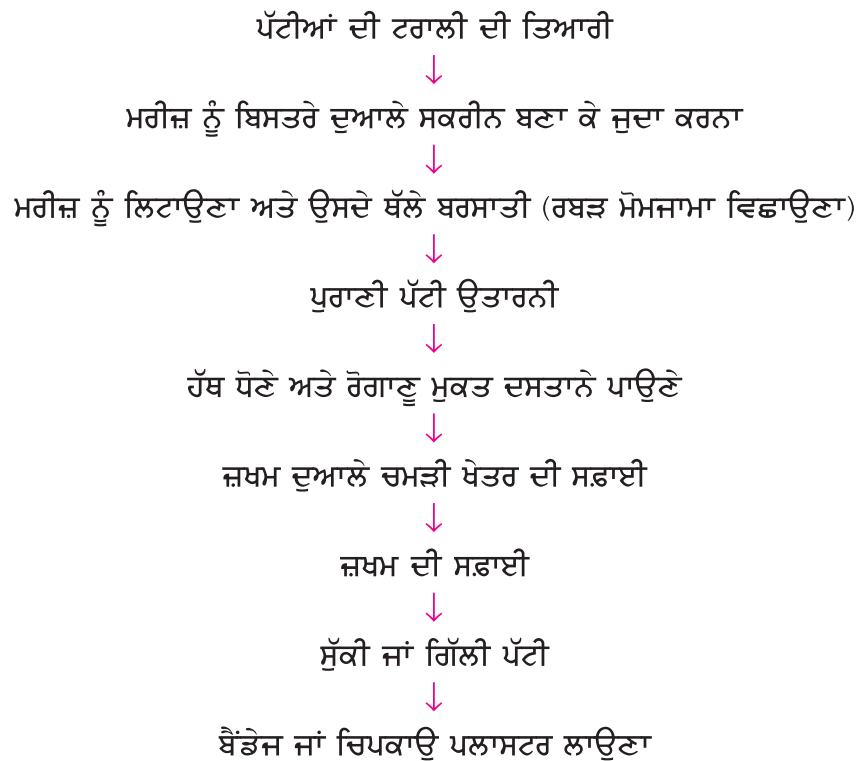 ਪੱਟੀਆਂ ਦੀ ਟਰਾਲੀ ਦੀ ਤਿਆਰੀ
ਮਰੀਜ਼ ਨੂੰ ਬਿਸਤਰੇ ਦੁਆਲੇ ਸਕਰੀਨ ਬਣਾ ਕੇ ਜੁਦਾ ਕਰਨਾ
ਮਰੀਜ਼ ਨੂੰ ਲਿਟਾਉਣਾ ਅਤੇ ਉਸਦੇ ਥੱਲੇ ਬਰਸਾਤੀ (ਰਬੜ ਮੋਮਜਾਮਾ ਵਿਛਾਉਣਾ)
ਪੁਰਾਣੀ ਪੱਟੀ ਉਤਾਰਨੀ
ਹੱਥ ਧੋਣੇ ਅਤੇ ਰੋਗਾਣੂ ਮੁਕਤ ਦਸਤਾਨੇ ਪਾਉਣੇ
ਜ਼ਖਮ ਦੁਆਲੇ ਚਮੜੀ ਖੇਤਰ ਦੀ ਸਫ਼ਾਈ
ਜ਼ਖਮ ਦੀ ਸਫ਼ਾਈ
ਸੁੱਕੀ ਜਾਂ ਗਿੱਲੀ ਪੱਟੀ
ਬੈਂਡੇਜ ਜਾਂ ਚਿਪਕਾਉ ਪਲਾਸਟਰ ਲਾਉਣਾ